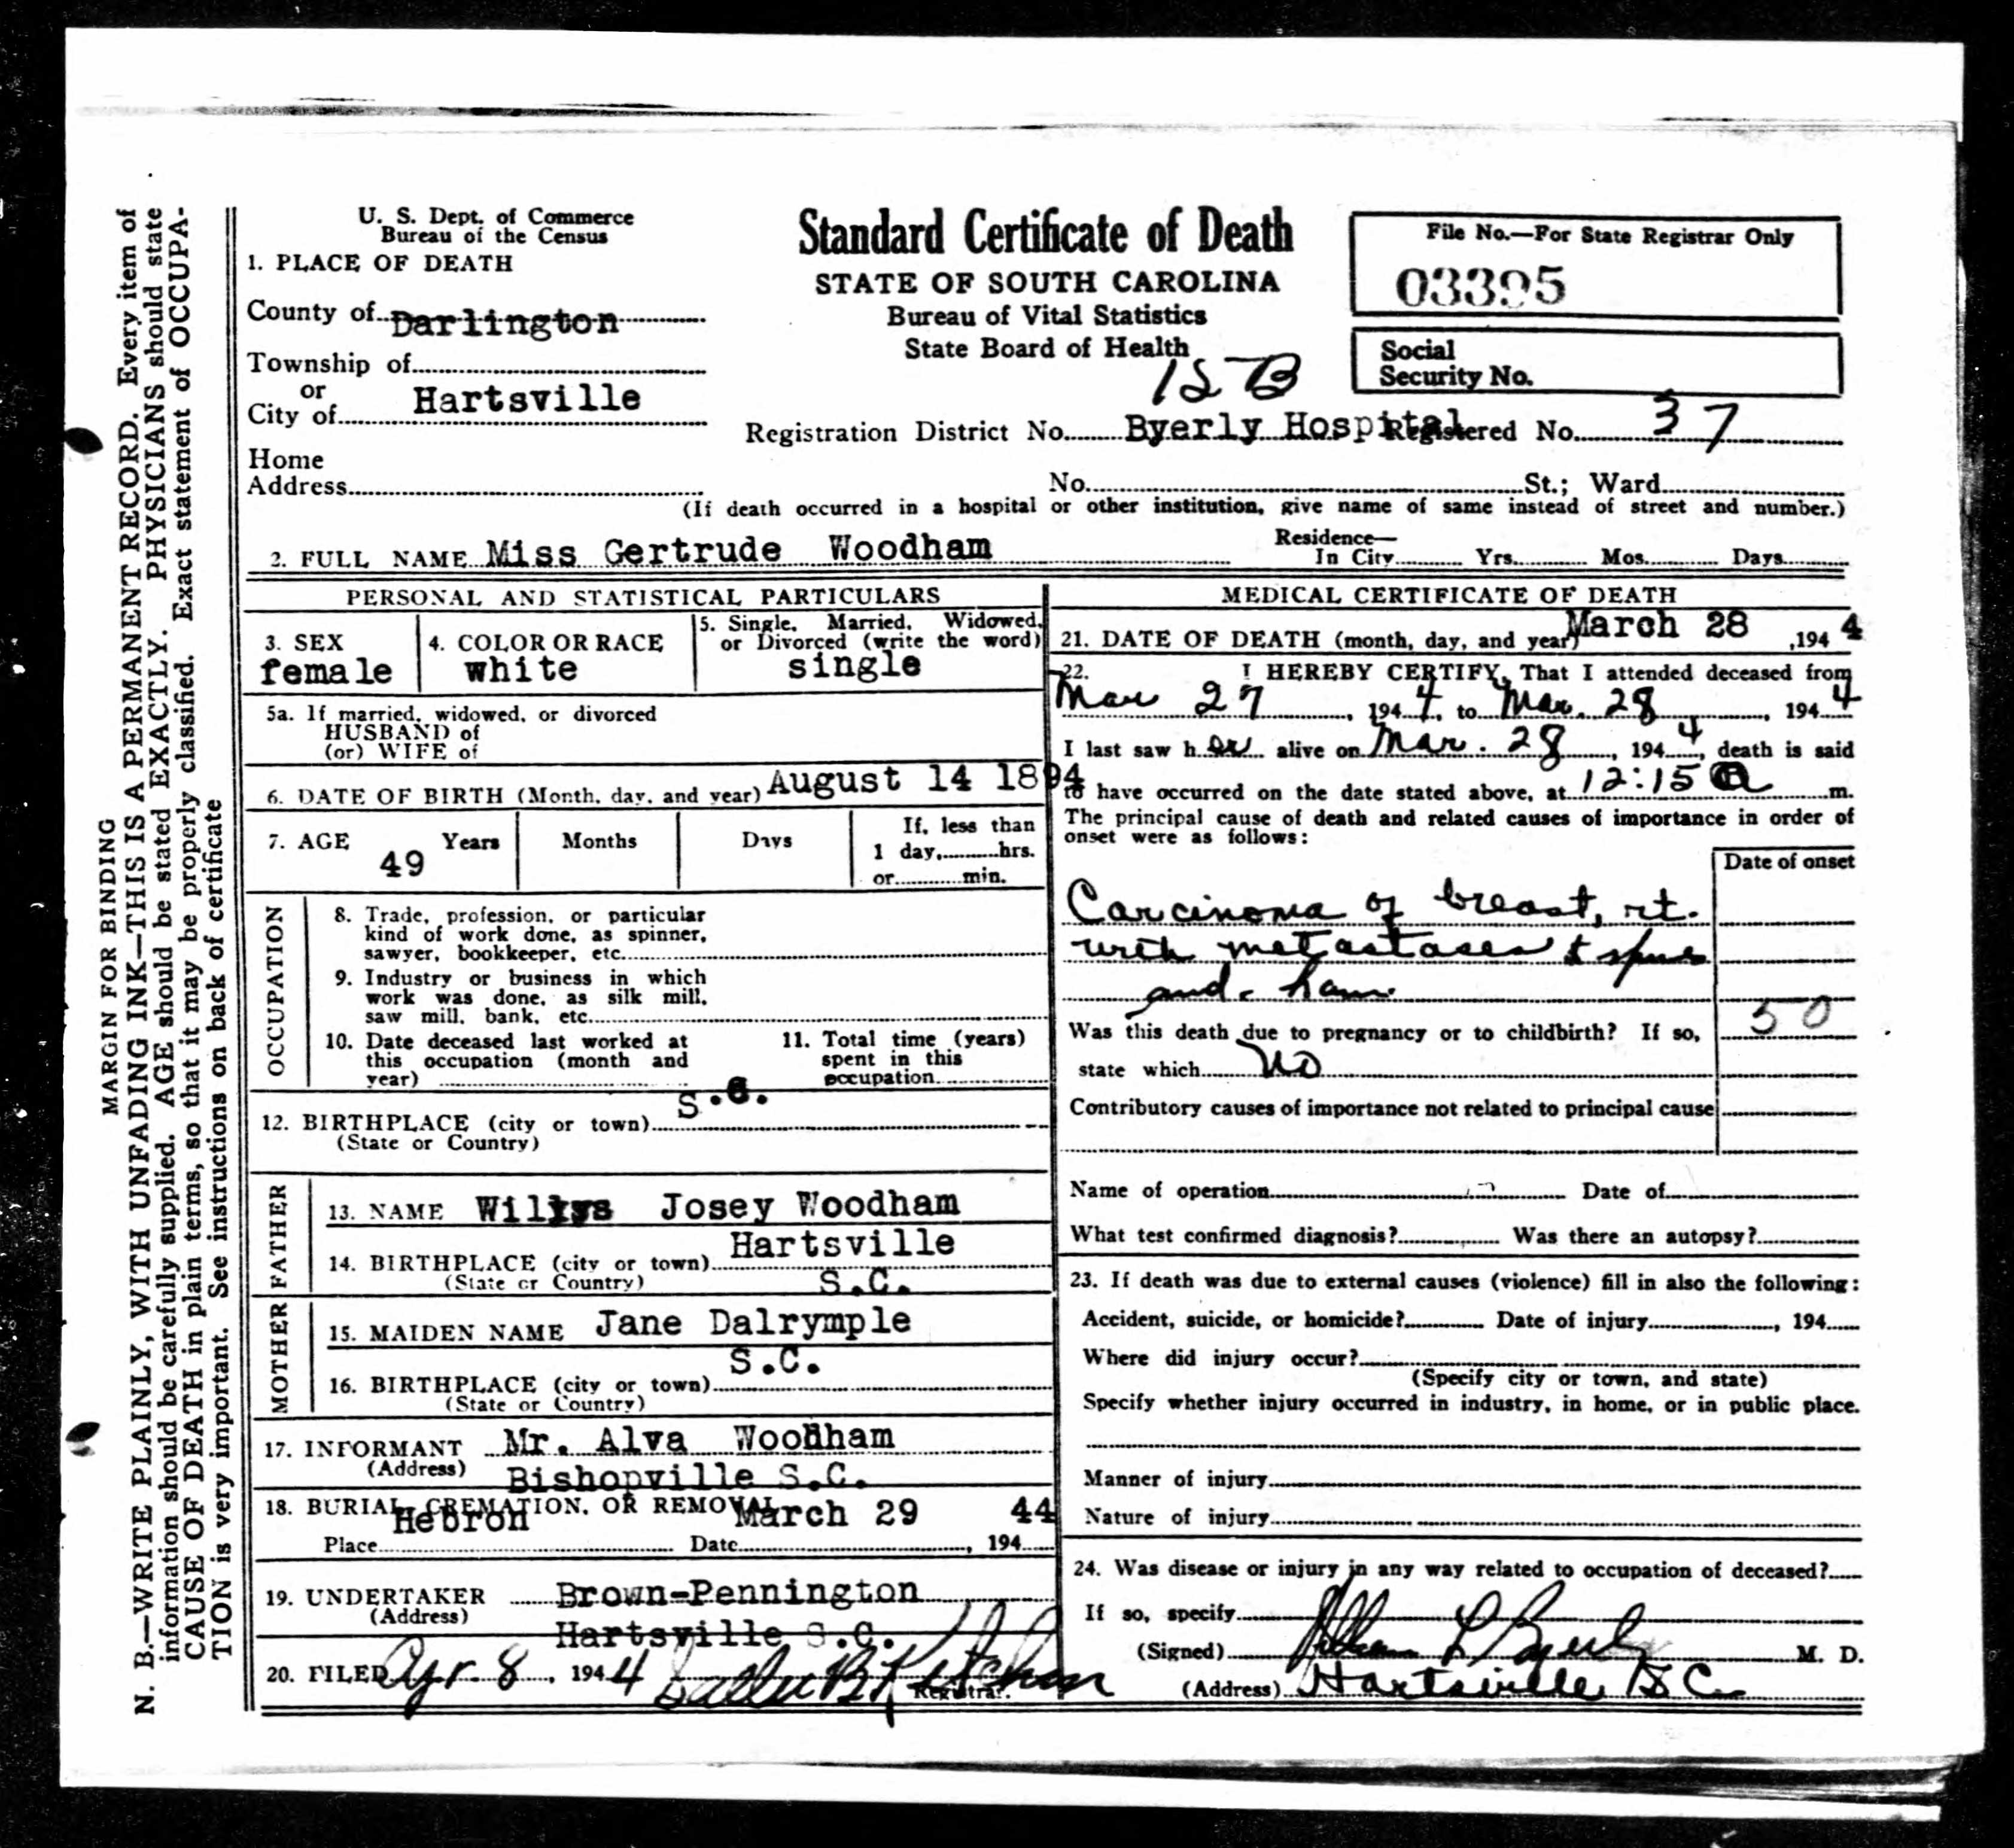 MARGIN FOR BINDING
N. B.—WRITE PLAINLY, WITH UNFADING INK—THIS IS A PERMANENT RECORD. Every item of
information should be carefully supplied. AGE should be stated EXACTLY. PHYSICIANS should state
CAUSE OF DEATH in plain terms, so that it may be properly classified. Exact statement of OCCUPA-
TION is very important. See instructions on back of certificate
U. S. Dept. of Commerce
Bureau of the Census
Standard Certificate of Death
STATE OF SOUTH CAROLINA
Bureau of Vital Statistics
State Board of Health
File No.—For State Registrar Only
03395
Social
Security No.
1. PLACE OF DEATH
County of Darlington
Township of
or
City of Hartsville
15 B
Registration District No. Byerly Hospital Registered No. 37
Home
Address
No. St.; Ward
(If death occurred in a hospital or other institution, give name of same instead of street and number.)
2. FULL NAME Miss Gertrude Woodham
Residence—
In City Yrs. Mos. Days
PERSONAL AND STATISTICAL PARTICULARS
3. SEX
female
4. COLOR OR RACE
white
5. Single, Married, Widowed,
or Divorced (write the word)
single
5a. If married, widowed, or divorced
HUSBAND of
(or) WIFE of
6. DATE OF BIRTH (Month, day, and year) August 14 1894
7. AGE Years Months Days
49
If, less than
1 day, hrs.
or min.
OCCUPATION
8. Trade, profession, or particular
kind of work done, as spinner,
sawyer, bookkeeper, etc.
9. Industry or business in which
work was done, as silk mill,
saw mill, bank, etc.
10. Date deceased last worked at
this occupation (month and
year)
11. Total time (years)
spent in this
occupation
12. BIRTHPLACE (city or town) S.C.
(State or Country)
FATHER
13. NAME Willys Josey Woodham
14. BIRTHPLACE (city or town) Hartsville
(State or Country) S.C.
MOTHER
15. MAIDEN NAME Jane Dalrymple
16. BIRTHPLACE (city or town) S.C.
(State or Country)
17. INFORMANT Mr. Alva Woodham
(Address) Bishopville S.C.
18. BURIAL, CREMATION, OR REMOVAL
Place Hebron Date March 29, 1944
19. UNDERTAKER Brown-Pennington
(Address) Hartsville S.C.
20. FILED Apr. 8, 1944 Sallie B Kitchen
Registrar.
MEDICAL CERTIFICATE OF DEATH
21. DATE OF DEATH (month, day, and year) March 28, 1944
22. I HEREBY CERTIFY, That I attended deceased from
Mar 27, 1944, to Mar. 28, 1944
I last saw her alive on Mar. 28, 1944, death is said
to have occurred on the date stated above, at 12:15 a m.
The principal cause of death and related causes of importance in order of
onset were as follows:
Date of onset
Carcinoma of breast, rt.
with metastases to spine
and
50
Was this death due to pregnancy or to childbirth? If so,
state which No
Contributory causes of importance not related to principal cause
Name of operation Date of
What test confirmed diagnosis? Was there an autopsy?
23. If death was due to external causes (violence) fill in also the following:
Accident, suicide, or homicide? Date of injury, 194
Where did injury occur?
(Specify city or town, and state)
Specify whether injury occurred in industry, in home, or in public place.
Manner of injury
Nature of injury
24. Was disease or injury in any way related to occupation of deceased?
If so, specify
(Signed) William L Byerly M. D.
(Address) Hartsville S C